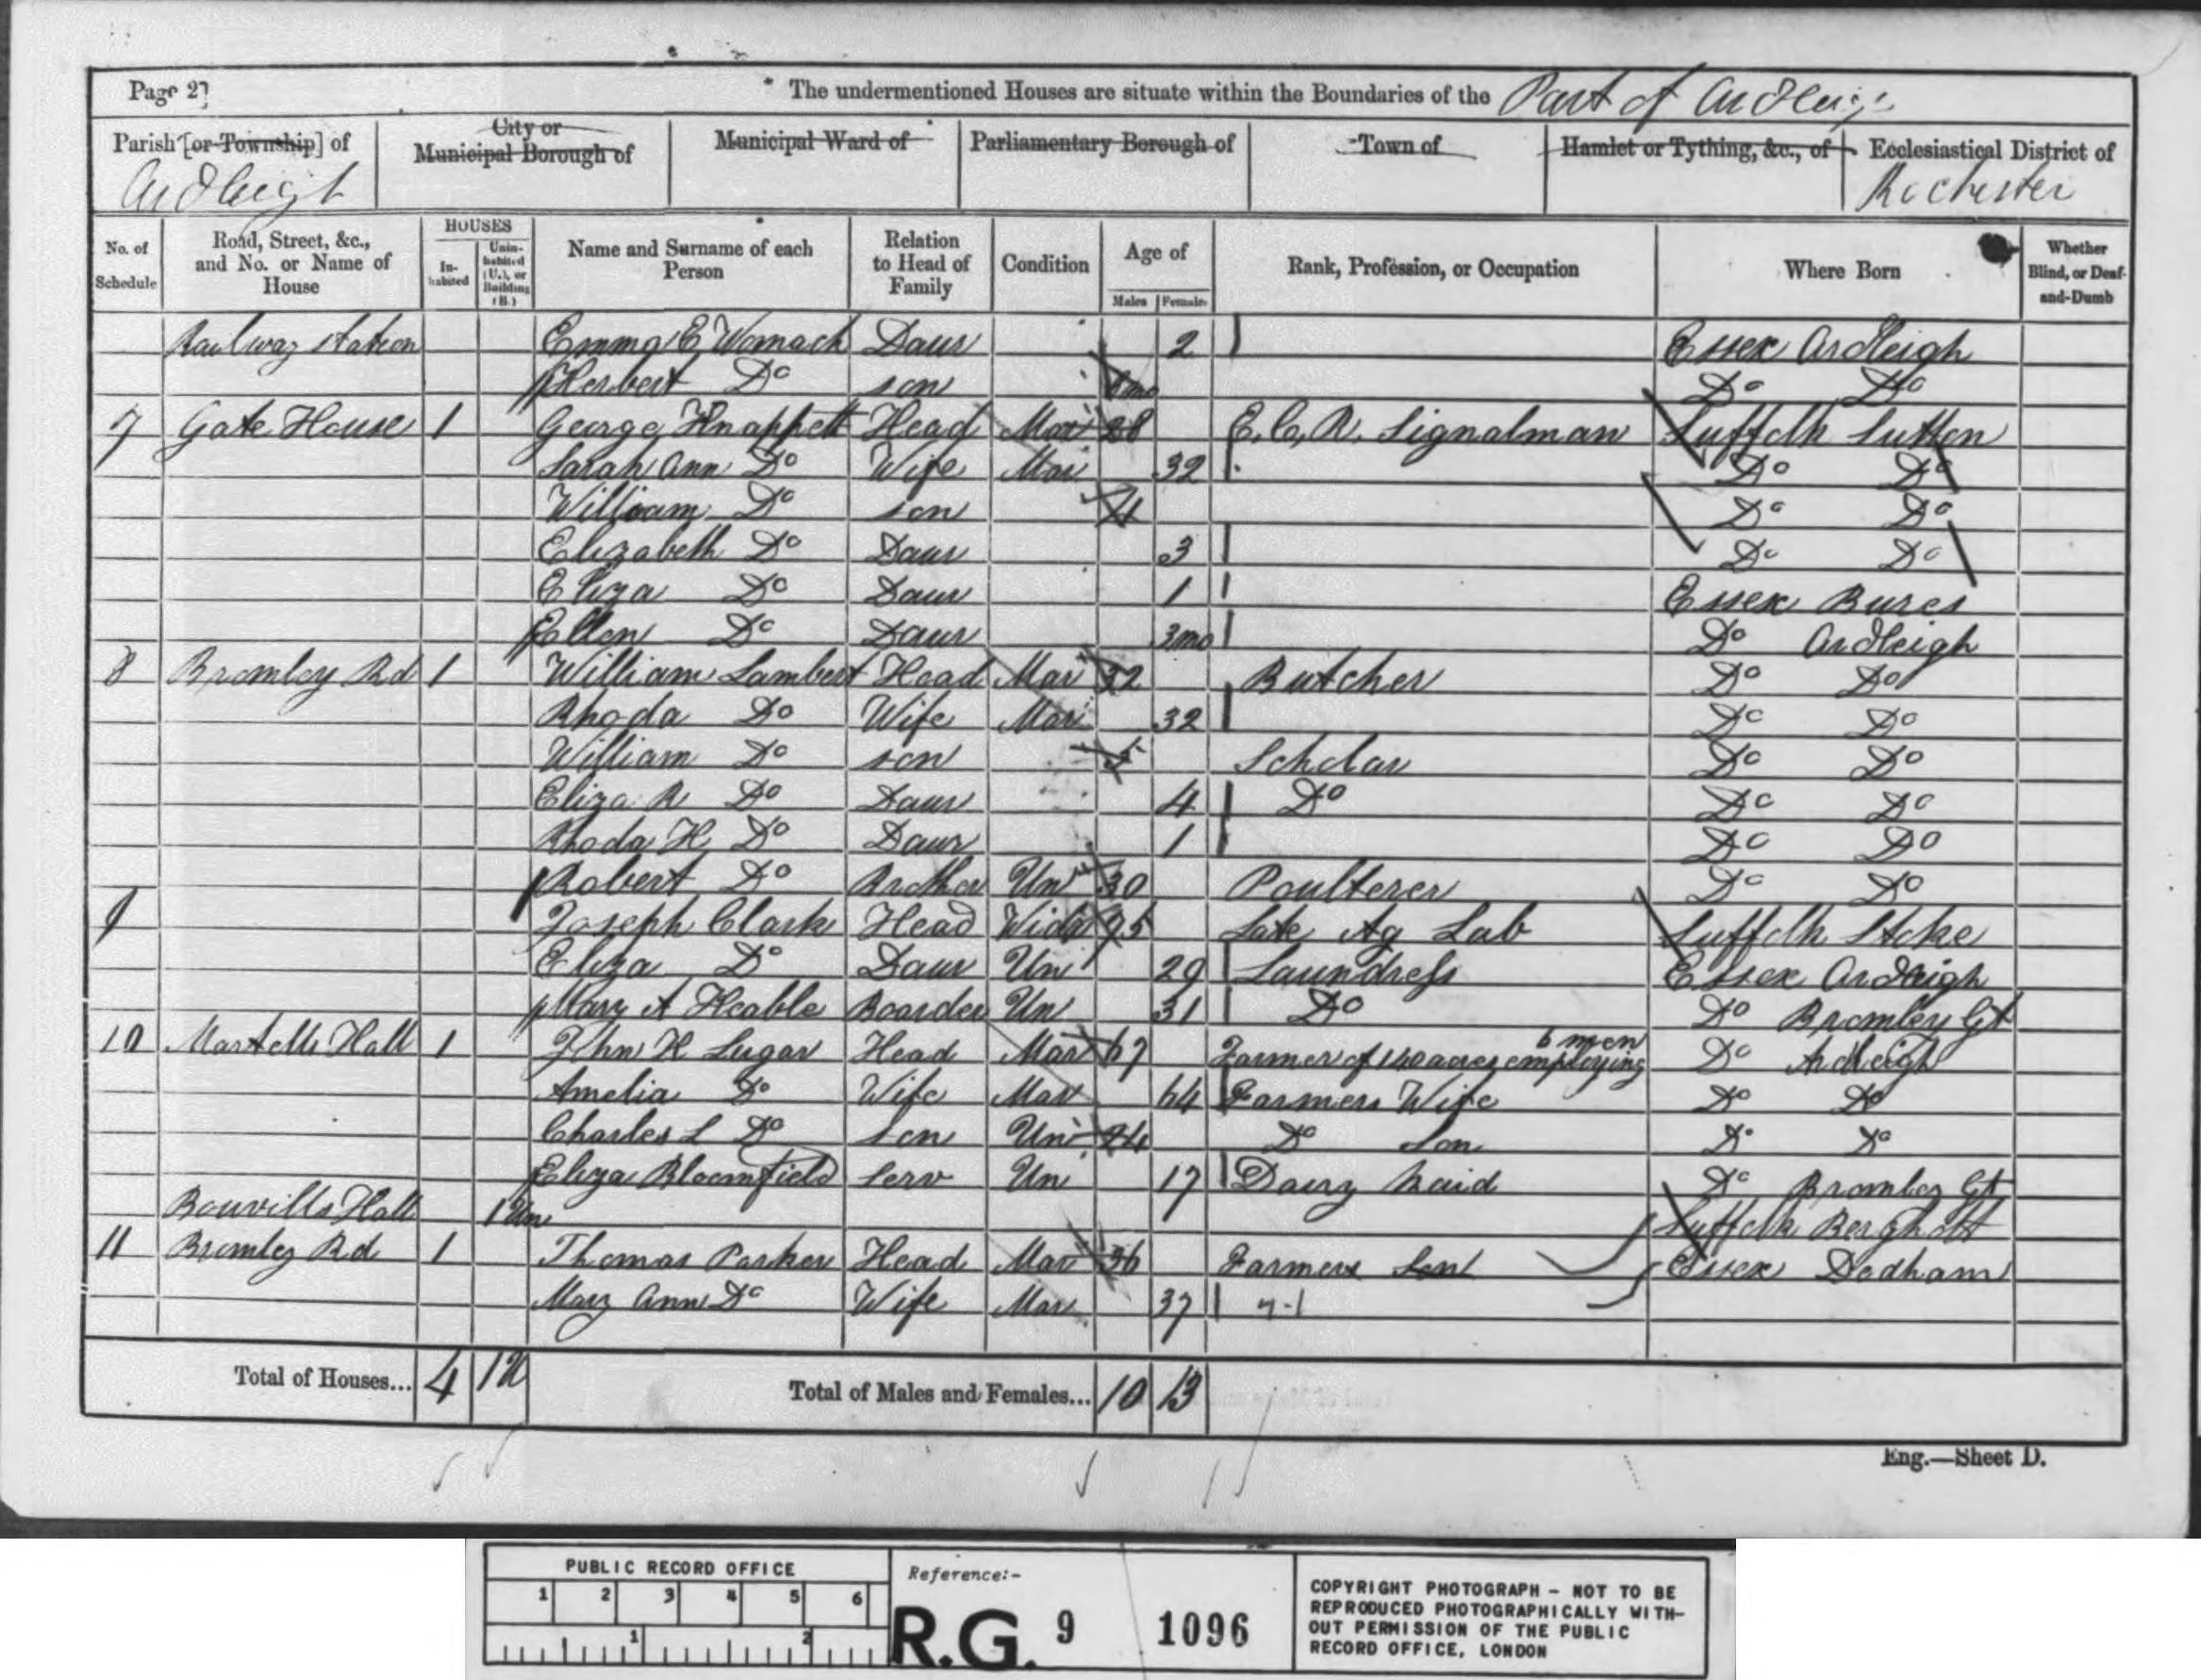 Page 27 The undermentioned Houses are situate within the Boundaries of the Part of Ardleigh
Parish [or Township] of City or Municipal Borough of Municipal Ward of Parliamentary Borough of Town of Hamlet or Tything, &c., of Ecclesiastical District of
Ardleigh Rochester
No. of Schedule Road, Street, &c., and No. or Name of House HOUSES Inhabited Uninhabited (U.), or Building (B.) Name and Surname of each Person Relation to Head of Family Condition Age of Males Females Rank, Profession, or Occupation Where Born Whether Blind, or Deaf-and-Dumb
Railway Station Emma E Womack Daur 2 Essex Ardleigh
Herbert Do son mo Do Do
7 Gate House 1 George Knappett Head Mar 28 E. C. R. Signalman Suffolk Sutton
Sarah Ann Do Wife Mar 32 Do Do
William Do son 4 Do Do
Elizabeth Do Daur 3 Do Do
Eliza Do Daur 1 Essex Bures
Ellen Do Daur 3mo Do Ardleigh
8 Bromley Rd 1 William Lambert Head Mar 32 Butcher Do Do
Rhoda Do Wife Mar 32 Do Do
William Do son 5 Scholar Do Do
Eliza R Do Daur 4 Do Do Do
Rhoda H Do Daur 1 Do Do
Robert Do Brother Un 30 Poulterer Do Do
9 Joseph Clark Head Widr 75 Late Ag Lab Suffolk Stoke
Eliza Do Daur Un 29 Laundress Essex Ardleigh
Mary A Heable Boarder Un 31 Do Do Bromley Gt
10 Martells Hall 1 John H Lugar Head Mar 67 Farmer of 140 acres employing 6 men Do Ardleigh
Amelia Do Wife Mar 64 Farmers Wife Do Do
Charles L Do son Un 24 Do Son Do Do
Eliza Bloomfield Serv Un 17 Dairy Maid Do Bromley Gt
Bouvills Hall 1 Un Suffolk Bergholt
11 Bromley Rd 1 Thomas Parker Head Mar 36 Farmers Son Essex Dedham
Mary Ann Do Wife Mar 37
Total of Houses... 4 1U Total of Males and Females... 10 13
Eng.—Sheet D.
PUBLIC RECORD OFFICE
1 2 3 4 5 6
1 2
Reference:-
R.G. 9 1096
COPYRIGHT PHOTOGRAPH – NOT TO BE
REPRODUCED PHOTOGRAPHICALLY WITH-
OUT PERMISSION OF THE PUBLIC
RECORD OFFICE, LONDON